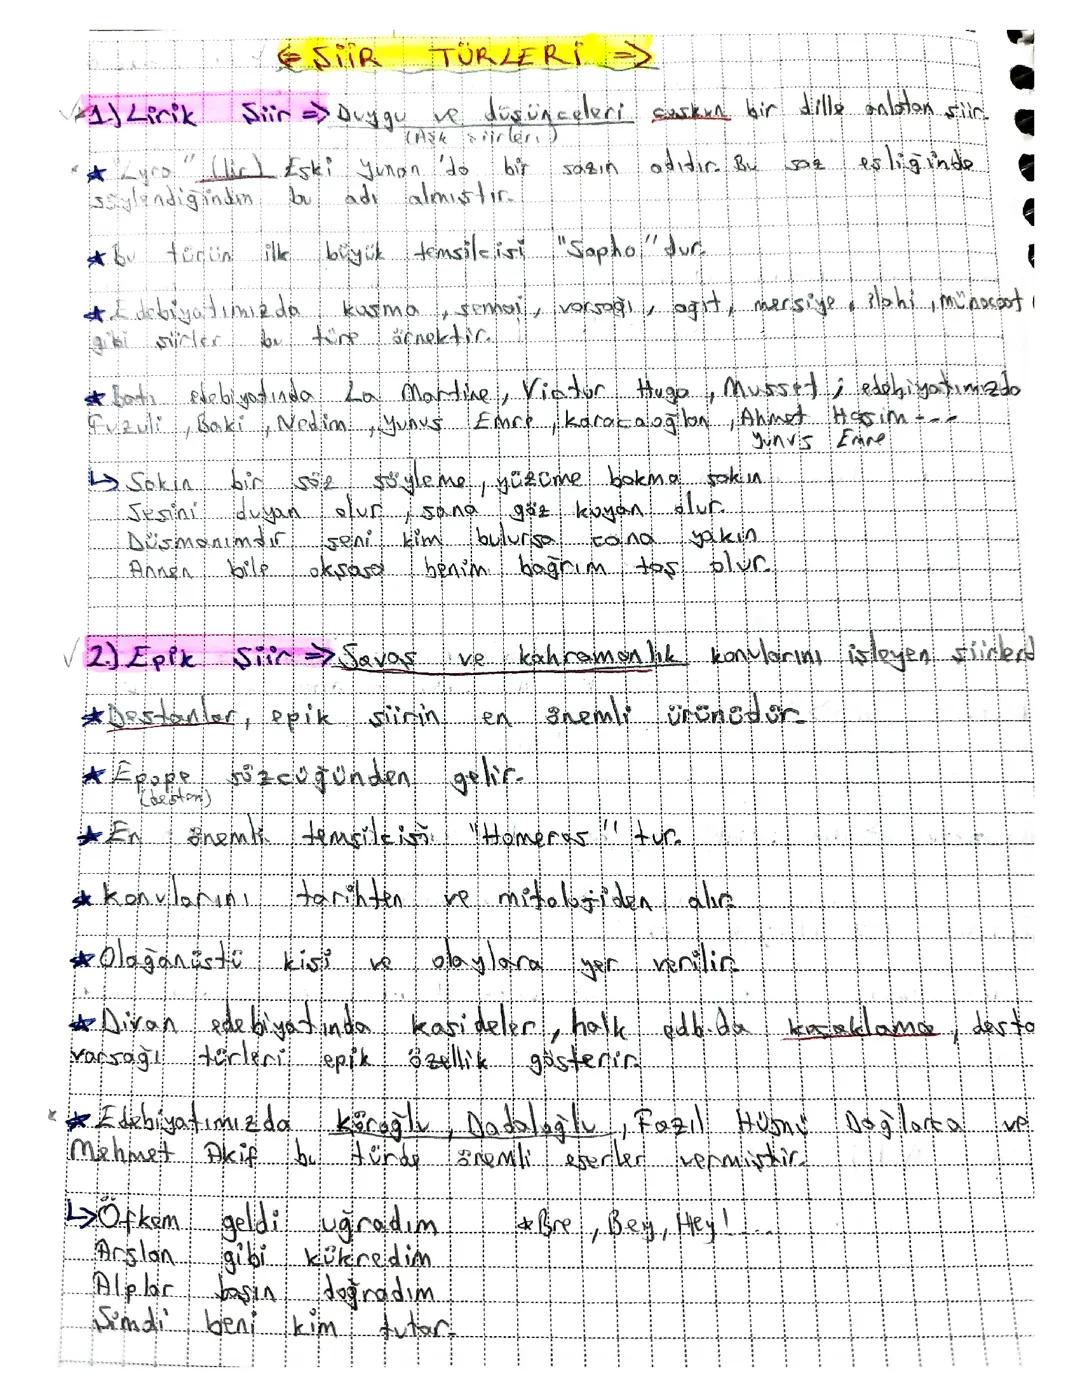 ⇐ ŞİİR TÜRLERİ ⇒
1.) Lirik Şiir ⇒ Duygu ve düşünceleri coşkun bir dille anlatan şiir
(Aşk şiirleri)
★ "Lyra" (lir) Eski Yunan'da bir sazın adıdır. Bu saz eşliğinde
söylendiğinden bu adı almıştır.
★ Bu türün ilk büyük temsilcisi "Sapho" dur.
★ Edebiyatımızda koşma, semai, varsağı, ağıt, mersiye, ilahi, münacaat
gibi şiirler bu türe örnektir.
★ Batı edebiyatında La Martine, Viktor Hugo, Musset; edebiyatımızda
Fuzuli, Baki, Nedim, Yunus Emre, Karacaoğlan, Ahmet Haşim ---
Yunus Emre
↳ Sakin bir söz söyleme, yüzüme bakma sakın
Sesini duyan olur, sana göz koyan olur.
Düşmanımdır seni kim bulursa cana yakın
Annen bile okşasa benim bağrım taş olur.
2.) Epik Şiir ⇒ Savaş ve kahramanlık konularını işleyen şiirlerd
★ Destanlar, epik şiirin en önemli ürünüdür.
★ Epope sözcüğünden gelir.
(destan)
★ En önemli temsilcisi "Homeros" tur.
★ Konularını tarihten ve mitolojiden alır.
★ Olağanüstü kişi ve olaylara yer verilir.
★ Divan edebiyatında kasideler, halk edb.da koçaklama, desta
varsağı türleri epik özellik gösterir.
★ Edebiyatımızda Köroğlu, Dadaloğlu, Fazıl Hüsnü Dağlarca ve
Mehmet Akif bu türde önemli eserler vermiştir.
↳ Öfkem geldi uğradım *Bre, Bey, Hey! ...
Arslan gibi kükredim
Alplar başın doğradım
Şimdi beni kim tutar.